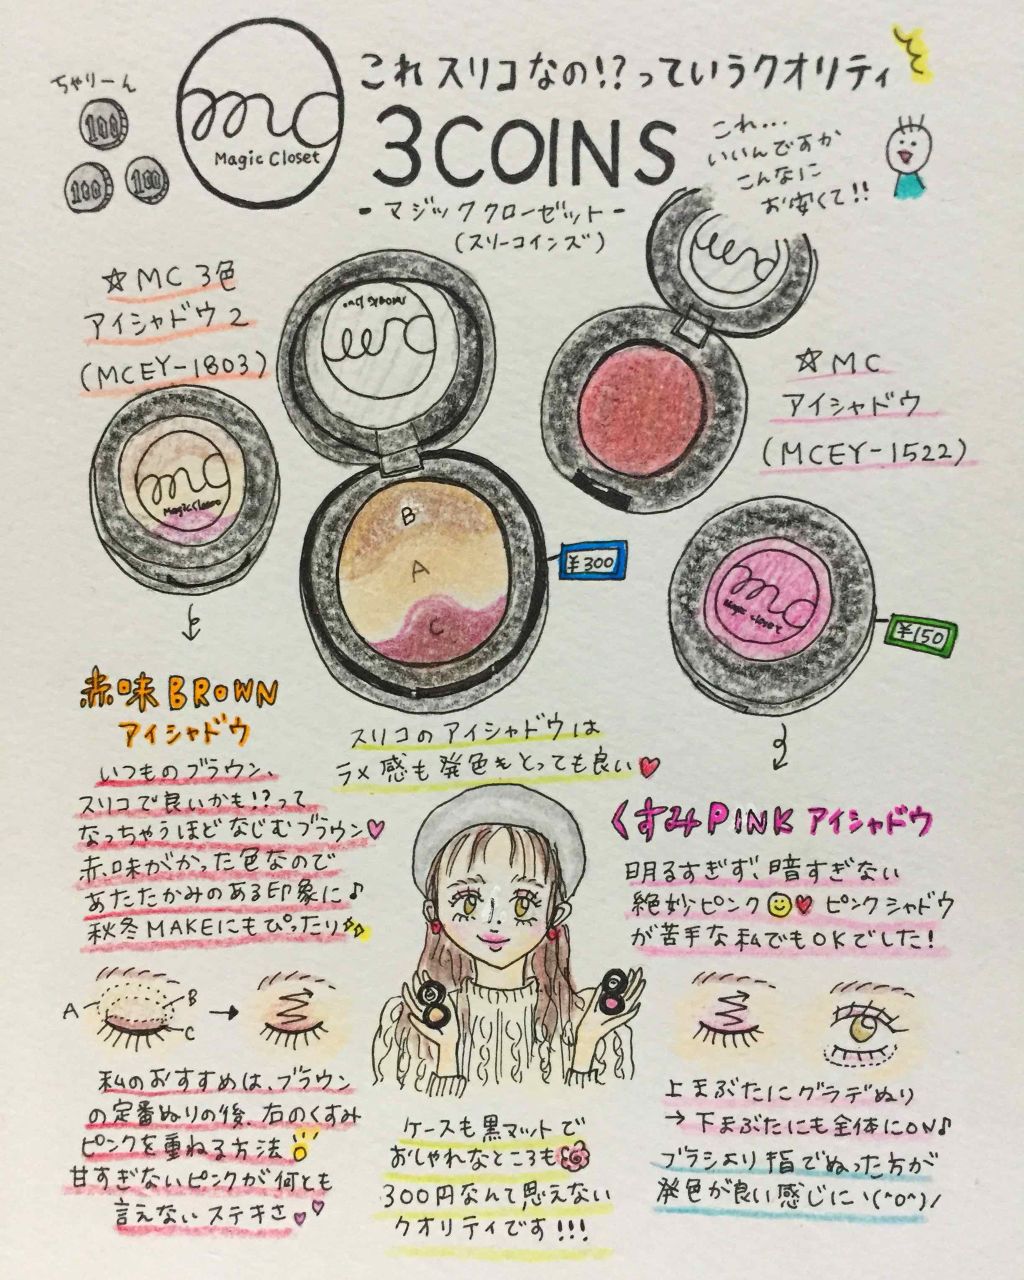 ちゃりーん
100
100
100
mc
Magic Closet
これスリコなの!?っていうクオリティ
3COINS
-マジッククローゼット-
(スリーコインズ)
これ...
いいんですか
こんなに
お安くて!!
☆MC 3色
アイシャドウ2
(MCEY-1803)
mc
Magic Closet
mc
Magic Closet
B
A
C
¥300
mc
☆MC
アイシャドウ
(MCEY-1522)
mc
Magic Closet
¥150
赤味BROWN
アイシャドウ
いつものブラウン、
スリコで良いかも!?って
なっちゃうほどなじむブラウン♥
赤味がかった色なので
あたたかみのある印象に♪
秋冬MAKEにもぴったり
A
B
C
私のおすすめは、ブラウン
の定番ぬりの後、右のくすみ
ピンクを重ねる方法
甘すぎないピンクが何とも
言えないステキさ♥♥
スリコのアイシャドウは
ラメ感も発色もとっても良い♥
ケースも黒マットで
おしゃれなところも
300円なんて思えない
クオリティです!!!
くすみPINKアイシャドウ
明るすぎず、暗すぎない
絶妙ピンク☺♥ ピンクシャドウ
が苦手な私でもOKでした!
上まぶたにグラデぬり
→下まぶたにも全体にON♪
ブラシより指でぬった方が
発色が良い感じに ヽ(^o^)/